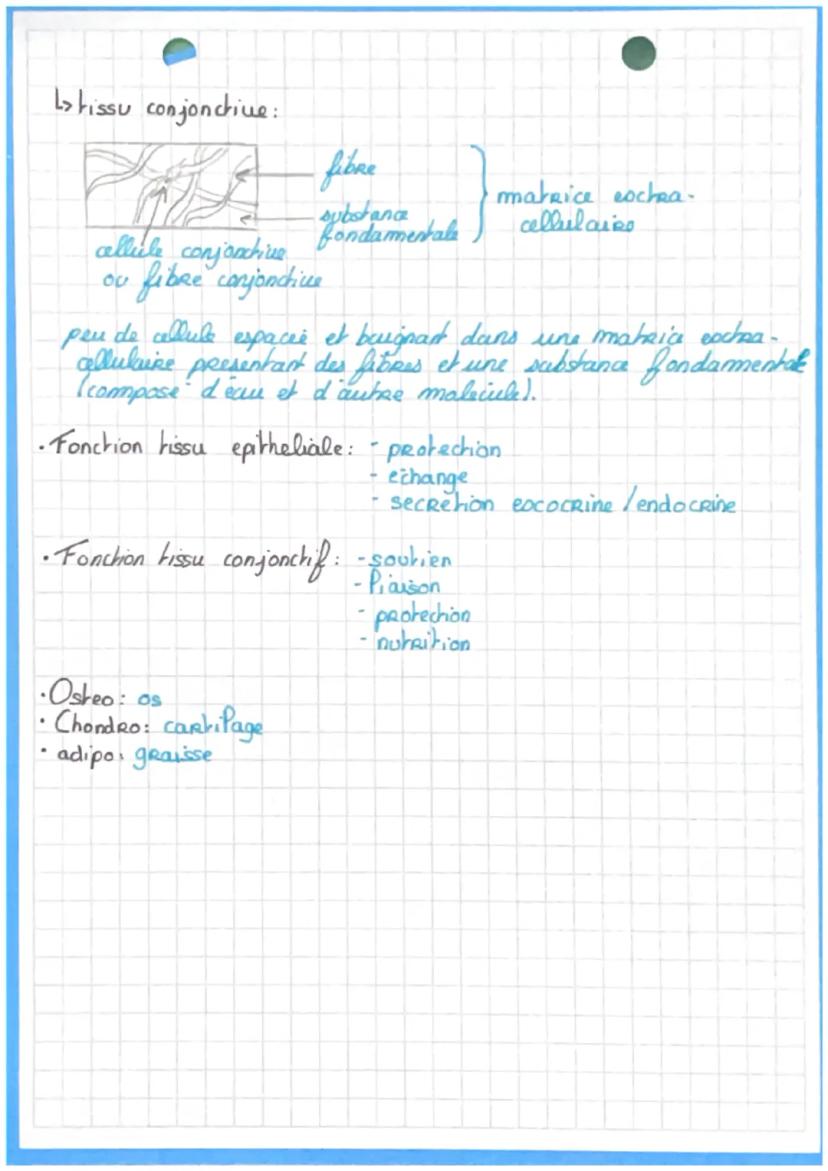 ↳ tissu conjonctive :
fibre
substance
fondamentale
matrice extra-
cellulaire
cellule conjonctive
ou fibre conjonctive
peu de cellule espacé et baignant dans une matrice extra-
cellulaire présentant des fibres et une substance fondammental
(composé d'eau et d'autre molécule).
• Fonction tissu epitheliale : - protection
- échange
- secretion exocrine / endocrine
• Fonction tissu conjonctif : - soutien
- liaison
- protection
- nutrition
• Osteo : os
• Chondro : cartilage
• adipo : graisse